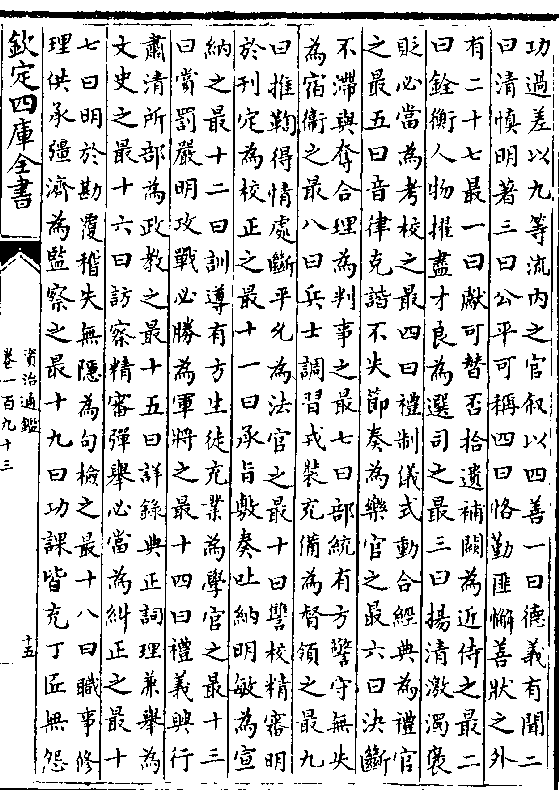 功過差以九等流内之官叙以四善一曰德義有聞二
曰清慎明著三曰公平可稱四曰恪勤匪懈善狀之外
有二十七最一曰獻可替否拾遺補闕為近侍之最二
曰銓衡人物擢盡才良為選司之最三曰揚清激濁襃
貶必當為考校之最四曰禮制儀式動合經典為禮官
之最五曰音律克諧不失節奏為樂官之最六曰決斷
不滯與奪合理為判事之最七曰部統有方警守無失
為宿衛之最八曰兵士調習戎裝充備為督領之最九
曰推鞫得情處斷平允為法官之最十曰讐校精審明
於刋定為校正之最十一曰承旨敷奏吐納明敏為宣
納之最十二曰訓導有方生徒充業為學官之最十三
曰賞罰嚴明攻戰必勝為軍將之最十四曰禮義興行
肅清所部為政教之最十五曰詳錄典正詞理兼舉為
文史之最十六曰訪察精審彈舉必當為糾正之最十
七曰明於勘覆稽失無隱為句檢之最十八曰職事修
理供承彊濟為監察之最十九曰功課皆充丁匠無怨
欽定四庫全書
資治通鑑
卷一百九十三
十五